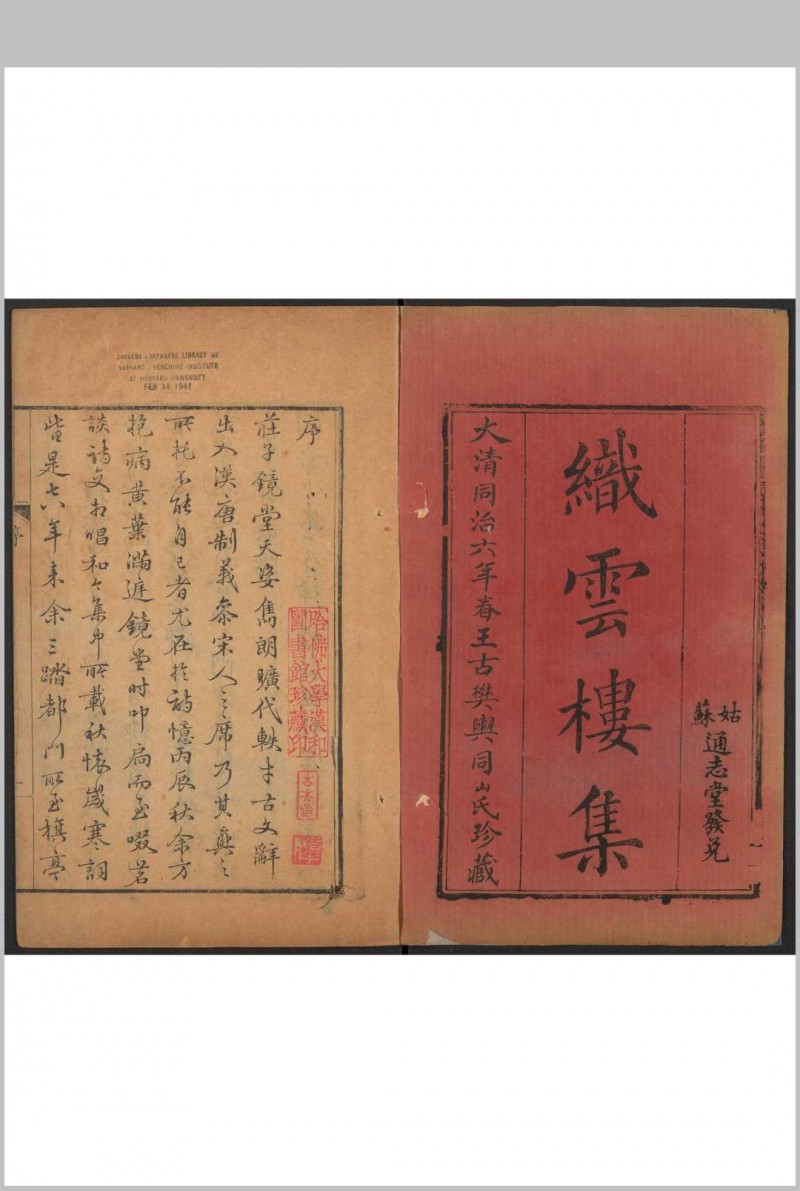 姑蘇通志堂發兌
織雲樓集
大清同治六年春王古樊輿同山氏珍藏
CHINESE - JAPANESE LIBRARY OF
HARVARD - YENCHING INSTITUTE
AT HARVARD UNIVERSITY
FEB 18 1941
哈佛大學漢和
圖書館珍藏印
序
莊子鏡堂天姿雋朗曠代軼才古文辭
出入漢唐制義參宋人之席乃其興之
所托不能自已者尤在於詩憶丙辰秋余方
抱病黃葉滿庭鏡堂时叩扃而至啜茗
談詩文相唱和今集中所載秋懷歲寒詞
皆是七八年来余三踏都门所至旗亭
序